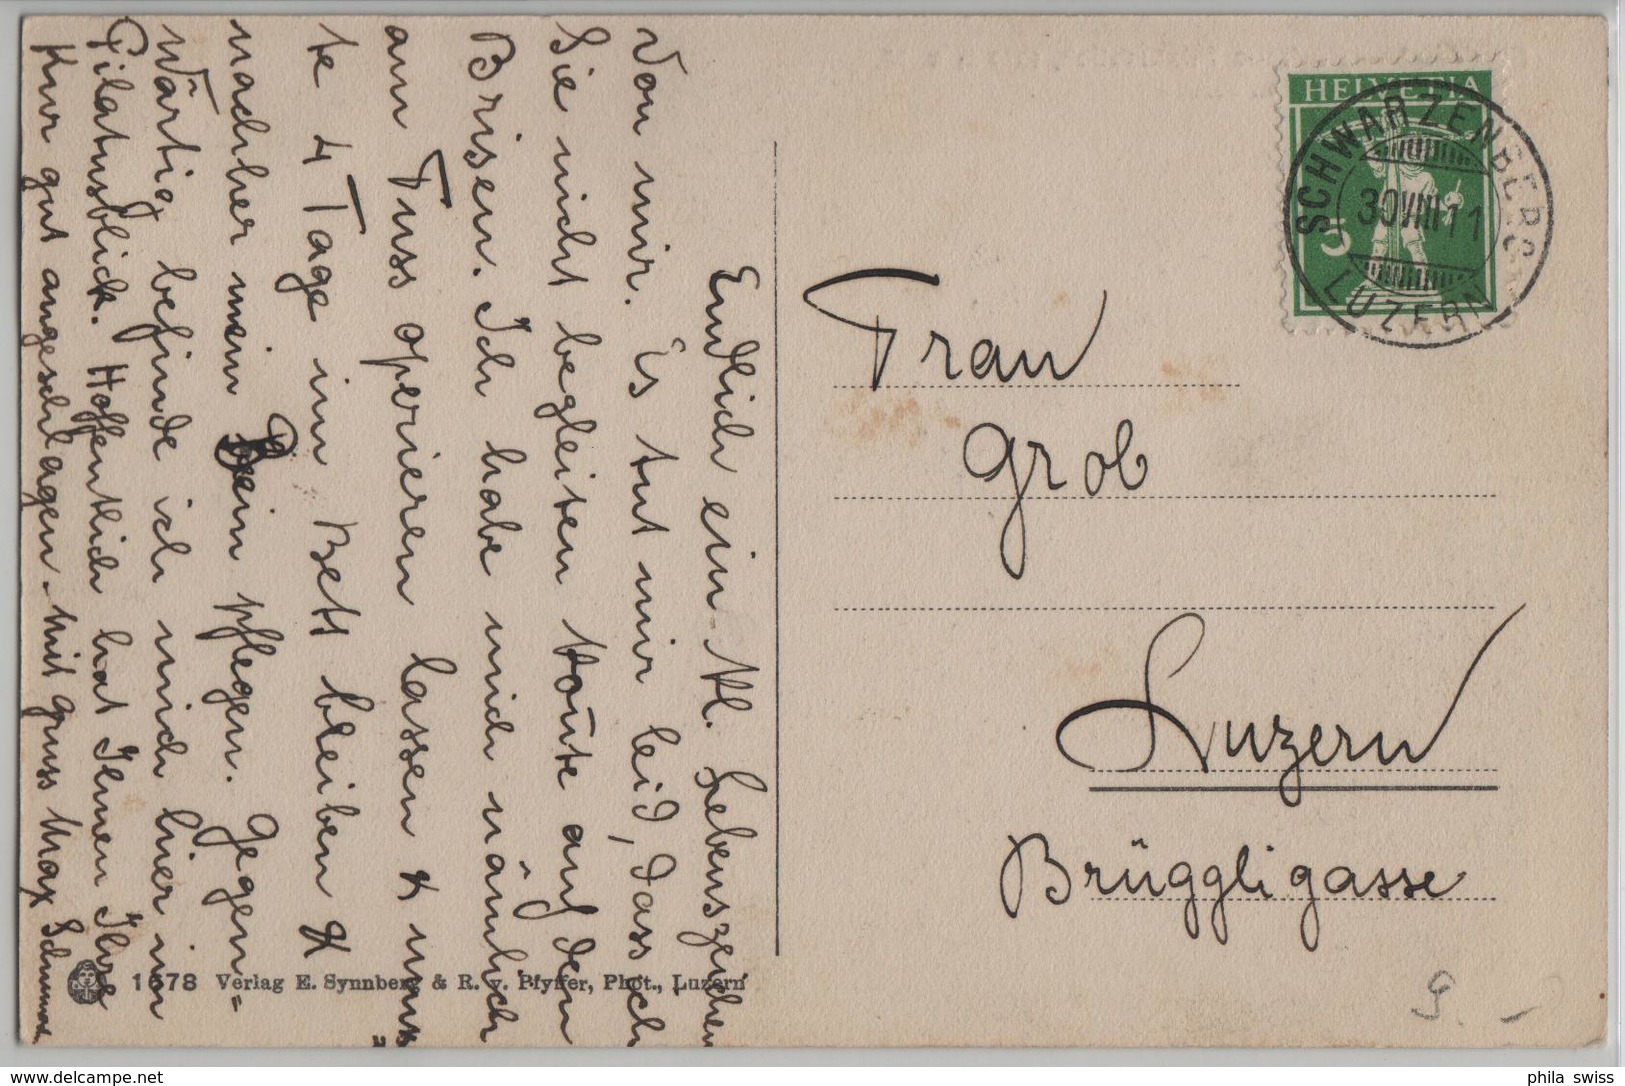 Endlich ein kl. Lebenszeichen
von mir. Es tut mir leid, dass ich
Sie nicht begleiten konnte auf den
Brisen. Ich habe mich nämlich
am Fuss operieren lassen & muss
te 4 Tage im Bett bleiben &
nachher mein Bein pflegen. Gegen=
wärtig befinde ich mich hier im
Pilatusblick. Hoffentlich hat Ihnen Ihre
Kur gut angeschlagen. Mit Gruss Max
HELVETIA
5
SCHWARZENBERG
30 VIII 11
LUZERN
Frau
Grob
Luzern
Brüggligasse
1678 Verlag E. Synnberg & R. v. Pfyffer, Phot., Luzern
phila swiss